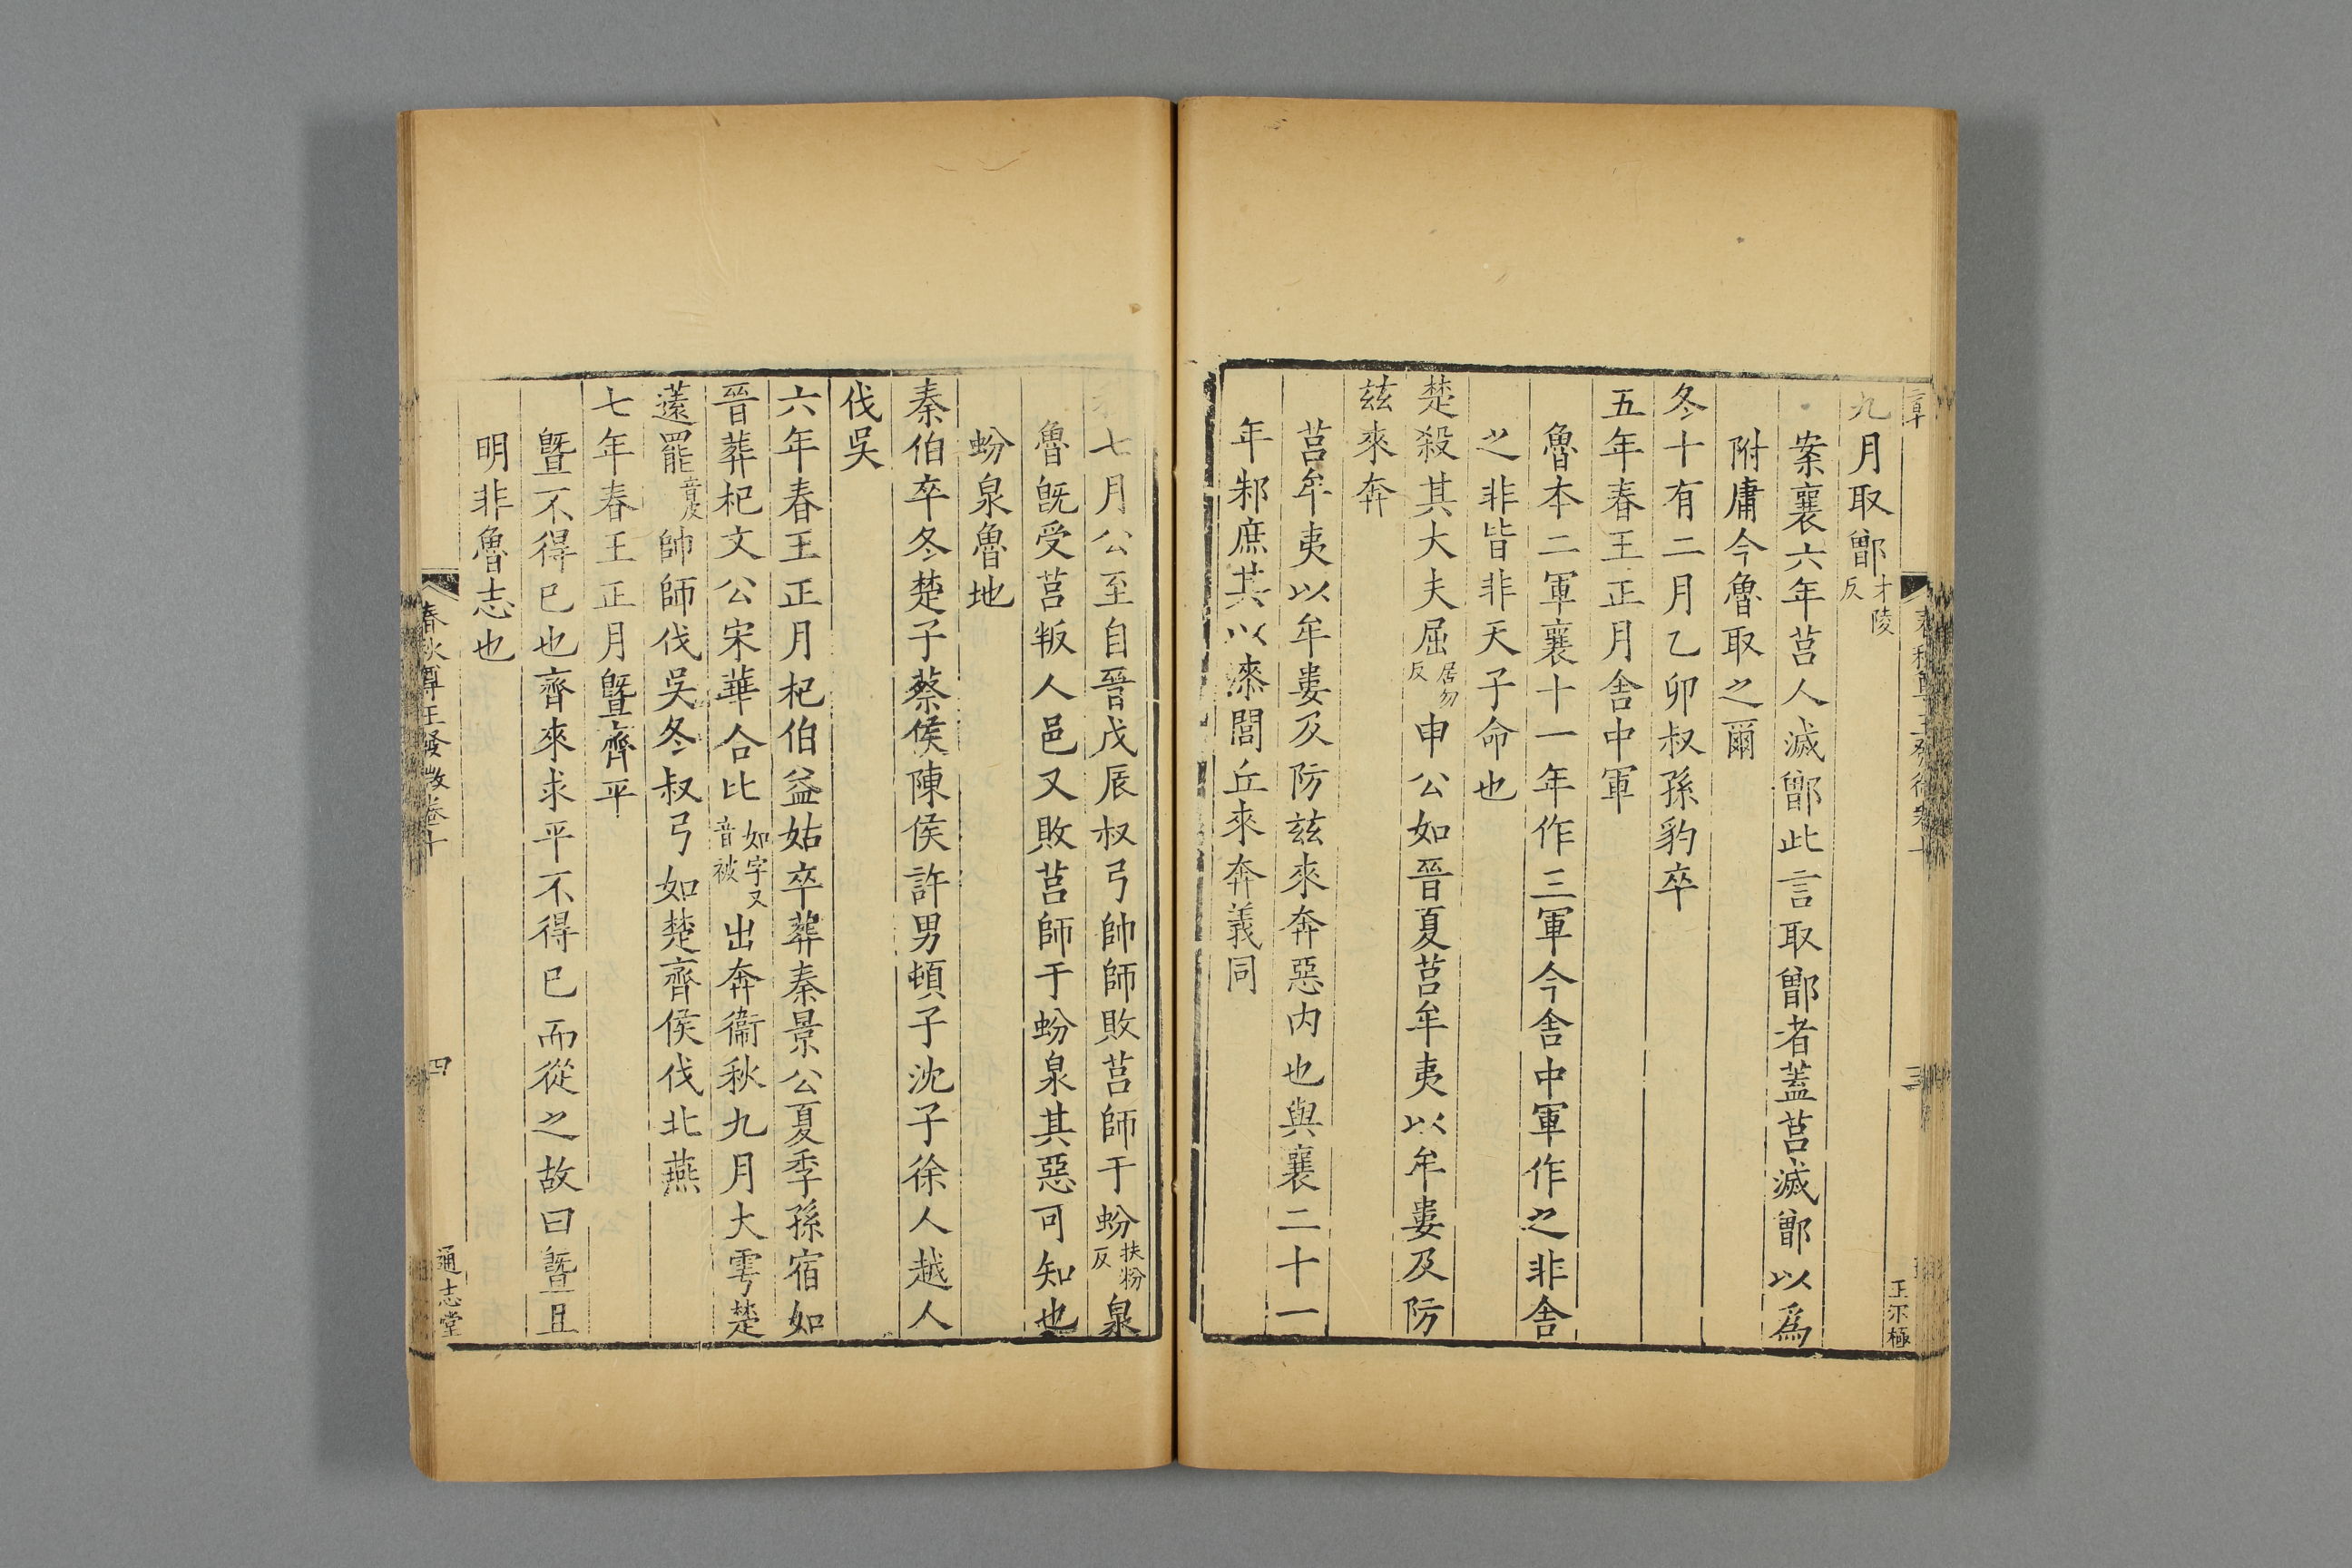 九月取鄫才陵反
案襄六年莒人滅鄫此言取鄫者蓋莒滅鄫以爲
附庸今魯取之爾
冬十有二月乙卯叔孫豹卒
五年春王正月舍中軍
魯本二軍襄十一年作三軍今舍中軍作之非舍
之非皆非天子命也
楚殺其大夫屈居勿反申公如晉夏莒牟夷以牟婁及防
茲來奔
莒牟夷以牟婁及防茲來奔惡内也與襄二十一
年邾庶其以漆閭丘來奔義同
王尔極
三
七月公至自晉戊辰叔弓帥師敗莒師于蚡扶粉反泉
魯旣受莒叛人邑又敗莒師于蚡泉其惡可知也
蚡泉魯地
秦伯卒冬楚子蔡侯陳侯許男頓子沈子徐人越人
伐吳
六年春王正月杞伯益姑卒葬秦景公夏季孫宿如
晉葬杞文公宋華合比如字又音被出奔衞秋九月大雩楚
薳罷音皮帥師伐吳冬叔弓如楚齊侯伐北燕
七年春王正月曁齊平
曁不得已也齊來求平不得已而從之故曰曁且
明非魯志也
春秋尊王發微卷十
四
通志堂